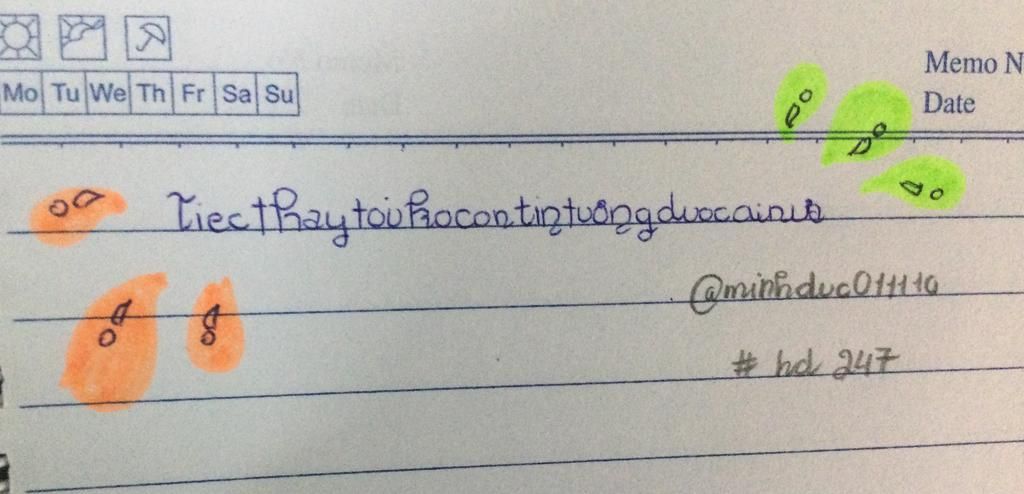 Memo N
Mo Tu We Th Fr Sa Su
Date
TiecthaytoikhocontintuongduocaiNua
@minhduc011110
# hd 247